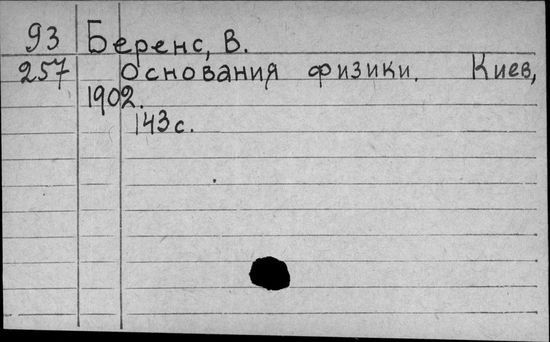 93 Беренс, В.
257 Основания физики. Киев,
1902.
143 с.